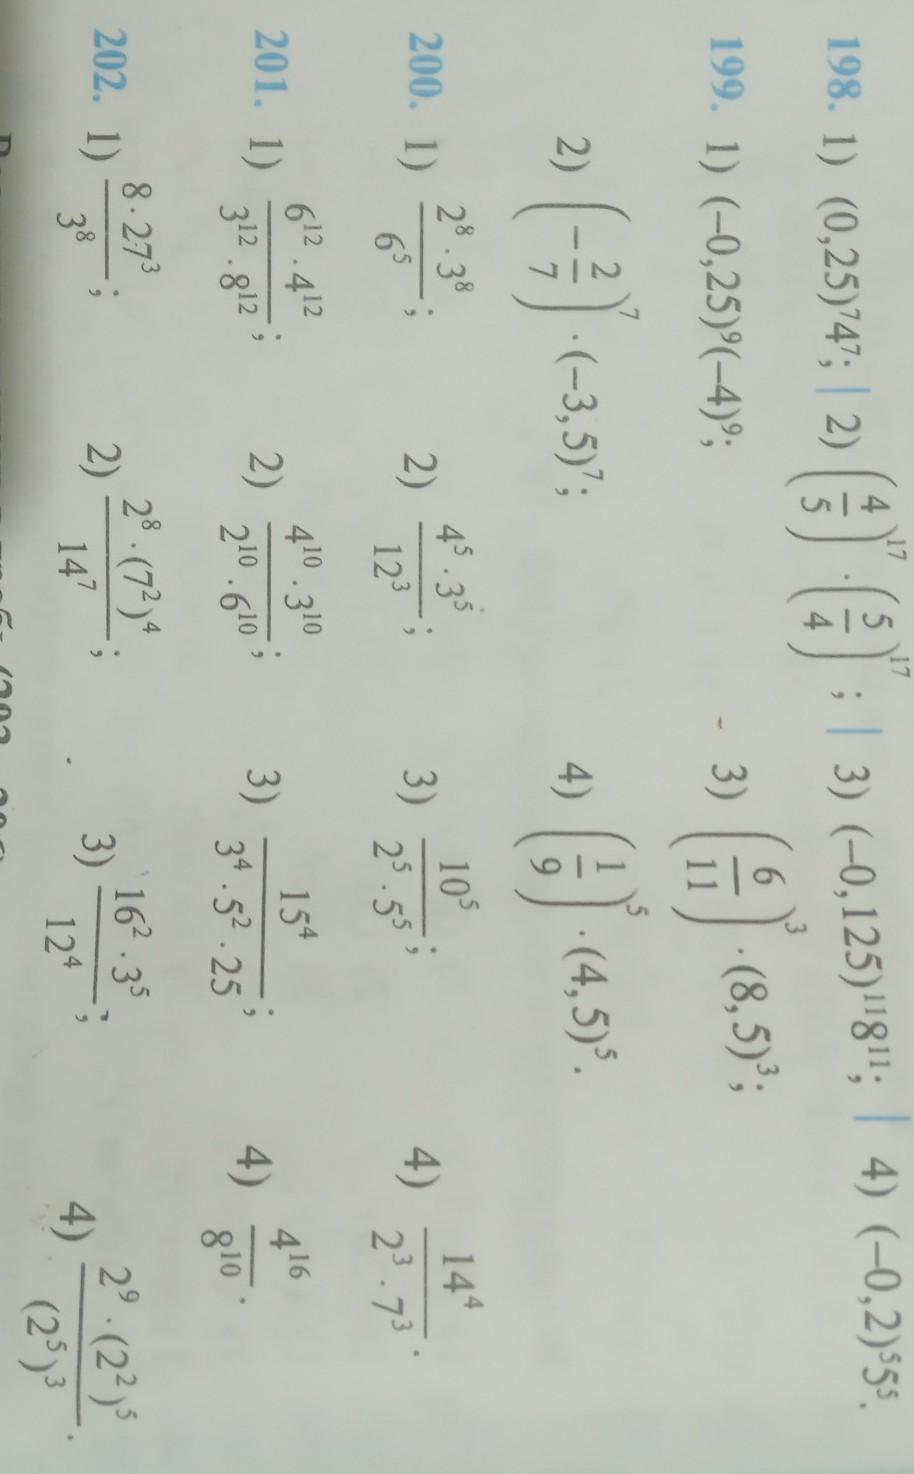 198. 1) (0,25)⁷4⁷; | 2) (4/5)¹⁷ · (5/4)¹⁷; | 3) (−0,125)¹¹8¹¹; | 4) (−0,2)⁵5⁵.
199. 1) (−0,25)⁹(−4)⁹; 3) (6/11)³ · (8,5)³;
2) (−2/7)⁷ · (−3,5)⁷; 4) (1/9)⁵ · (4,5)⁵.
200. 1) (2⁸ · 3⁸)/6⁵; 2) (4⁵ · 3⁵)/12³; 3) 10⁵/(2⁵ · 5⁵); 4) 14⁴/(2³ · 7³).
201. 1) (6¹² · 4¹²)/(3¹² · 8¹²); 2) (4¹⁰ · 3¹⁰)/(2¹⁰ · 6¹⁰); 3) 15⁴/(3⁴ · 5² · 25); 4) 4¹⁶/8¹⁰.
202. 1) (8 · 27³)/3⁸; 2) (2⁸ · (7²)⁴)/14⁷; 3) (16² · 3⁵)/12⁴; 4) (2⁹ · (2²)⁵)/(2⁵)³.